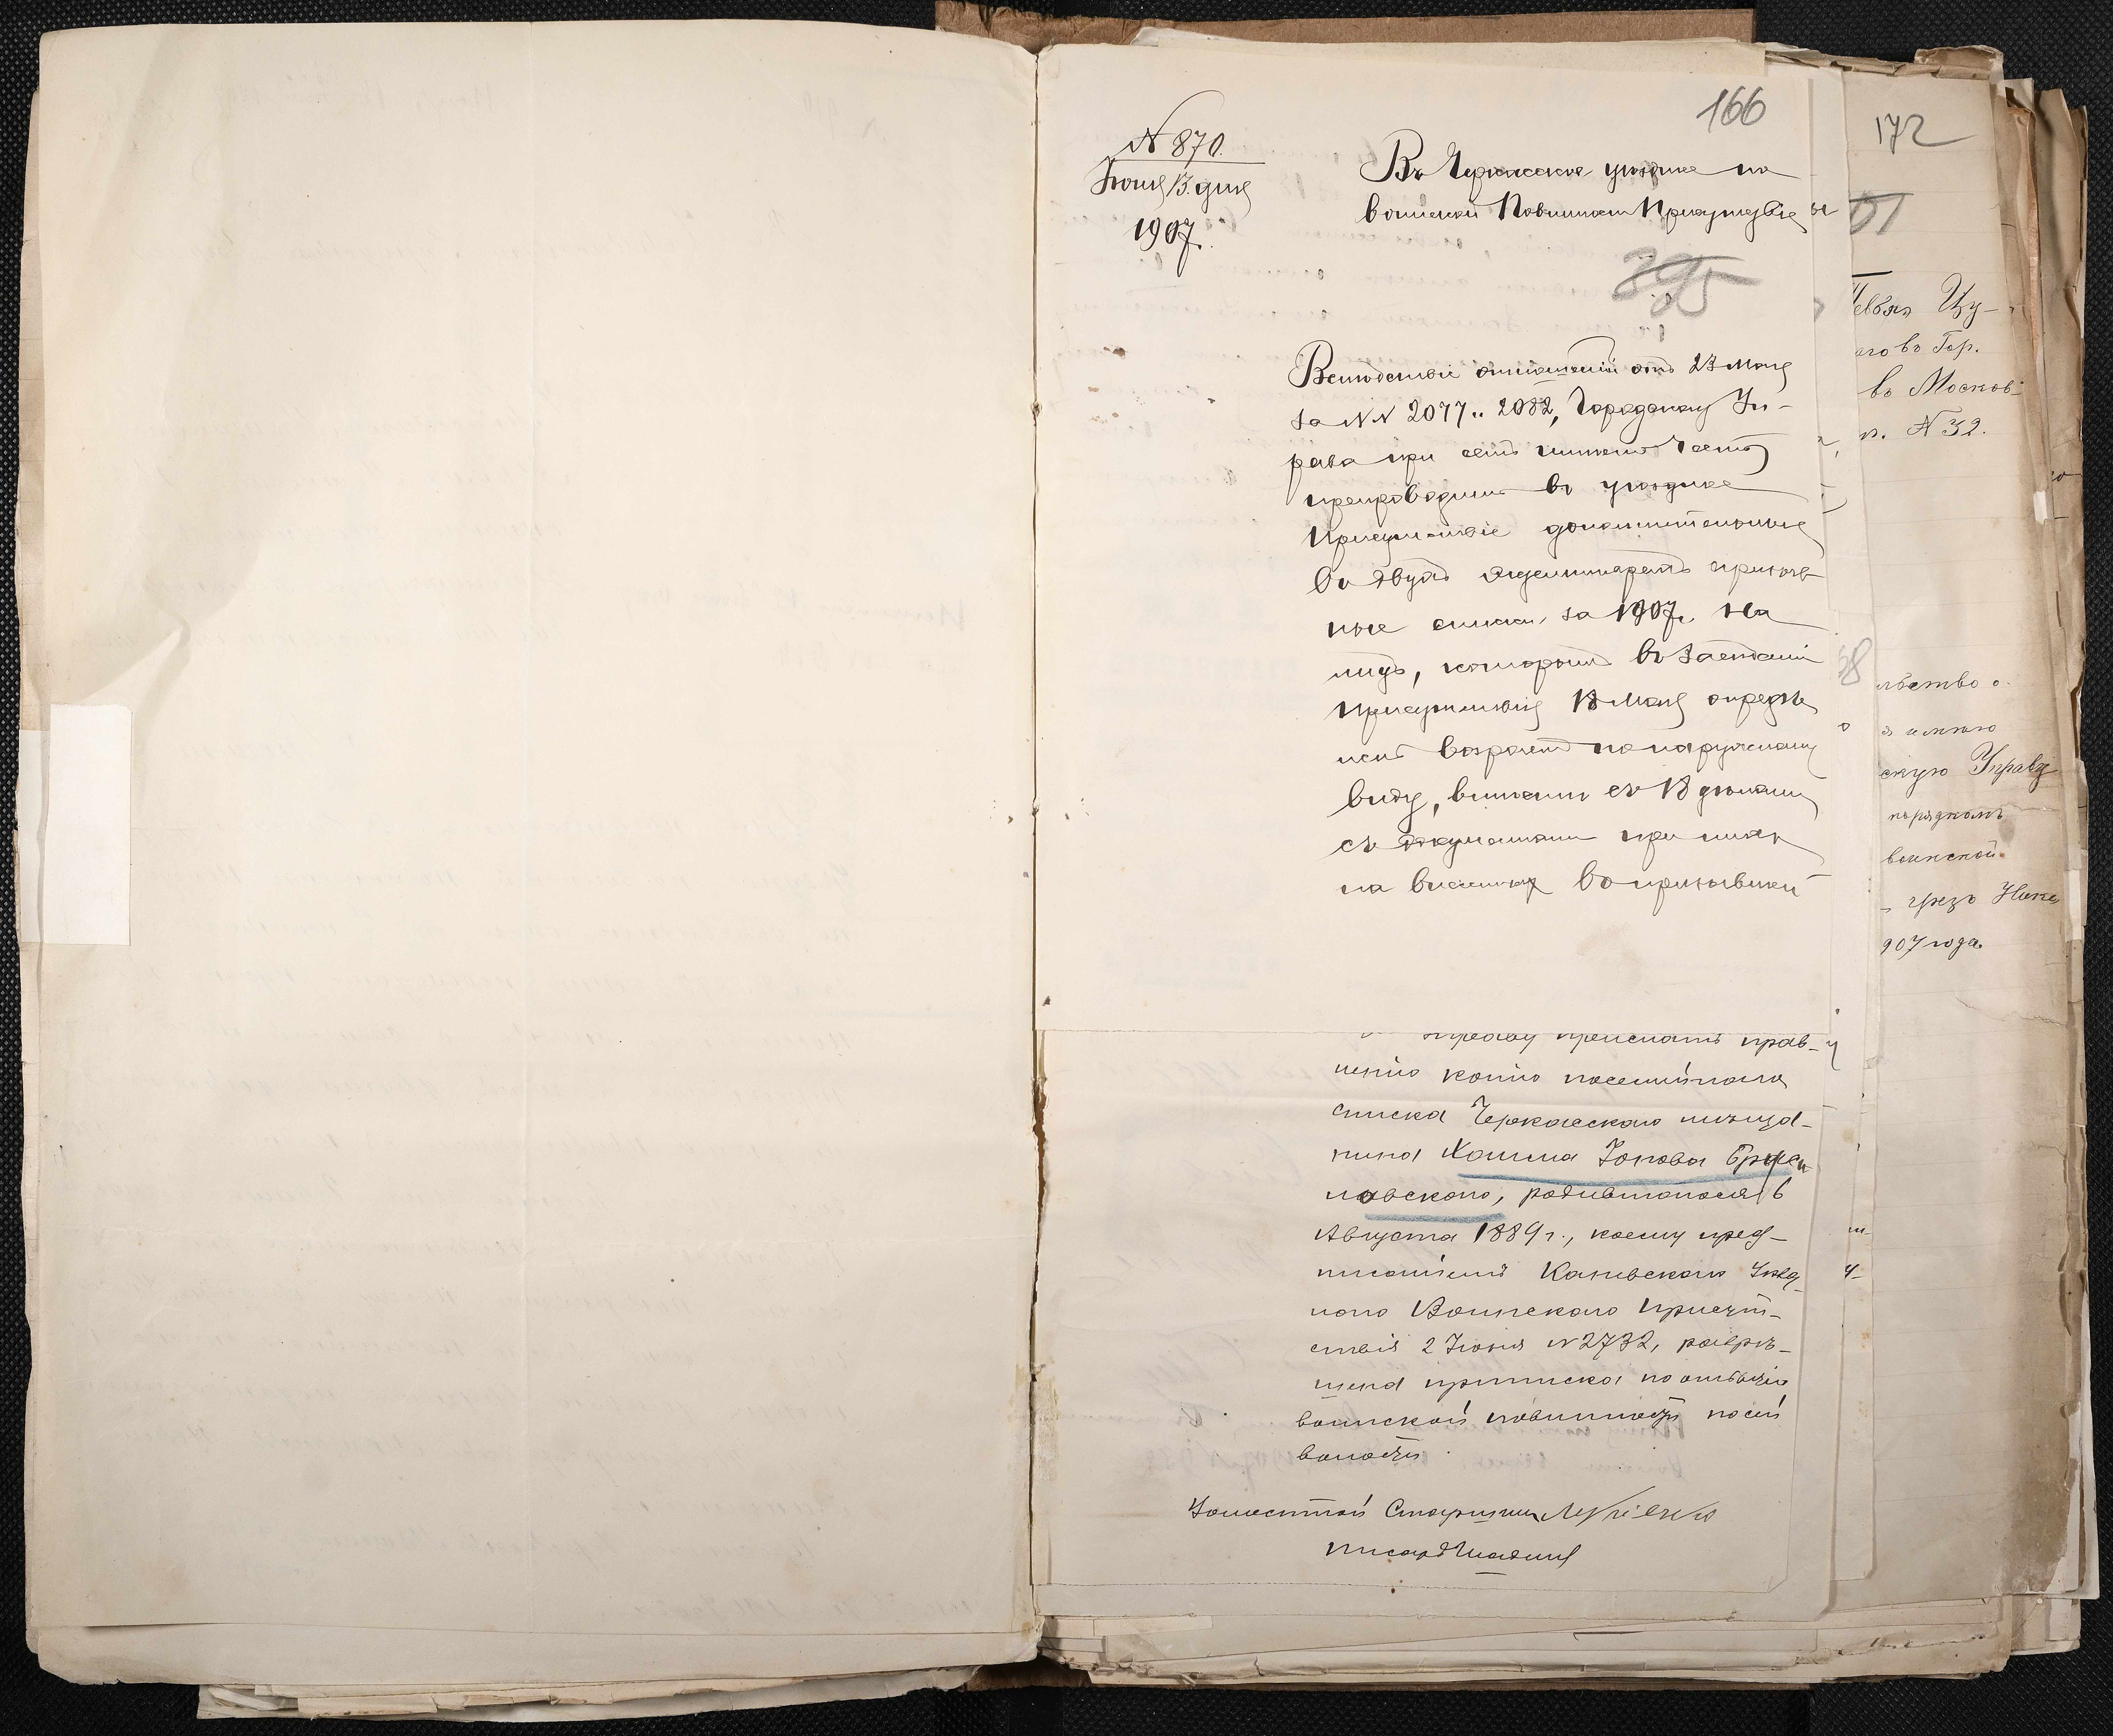 166
N 870.
Іюня 13. дня
1907.
Въ Черкасское уѣздное по
воинской Повинности Присутствіе
395
Вслѣдствіе отношеній отъ 23 Мая
за NN 2077 и 2082, Городская Уп-
рава при семъ имѣетъ честь
препроводить въ уѣздное
Присутствіе дополнительные
въ двухъ экземплярахъ призыв-
ные списки за 1907 г. на
лицъ, которымъ въ засѣданіи
Присутствія 18 Мая опредѣ
ленъ возрастъ по наружному
виду, вмѣстѣ съ 13 дѣлами
съ документами при нихъ
на внесенныхъ въ призывной
Управу прислать прав-
ленію копію посемейнаго
списка Черкасскаго мѣща-
нина Хаима Іонова
ловскаго, родившагося 6
Августа 1889 г., коему пред-
писаніемъ Каневскаго Уѣзд-
наго Воинскаго Присут-
ствія 2 Іюня N 2732, разрѣ-
шена приписка по отбытію
воинской повинности по сей
волости.
Волостной Старшина
Писарь
172
Цу-
аго въ Гор.
въ Москов-
п. N 32.
льство о
скую Управу
порядкомъ
воинской
чрезъ Нике
907 года.